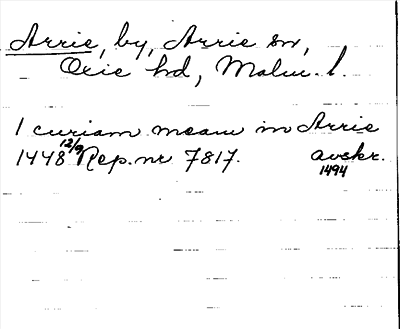 Arrie, by, Arrie sn,
Oxie hd, Malm. l.
1 curiam meam in Arrie
1448 12/9 Rep. nr 7817. avskr.
1494